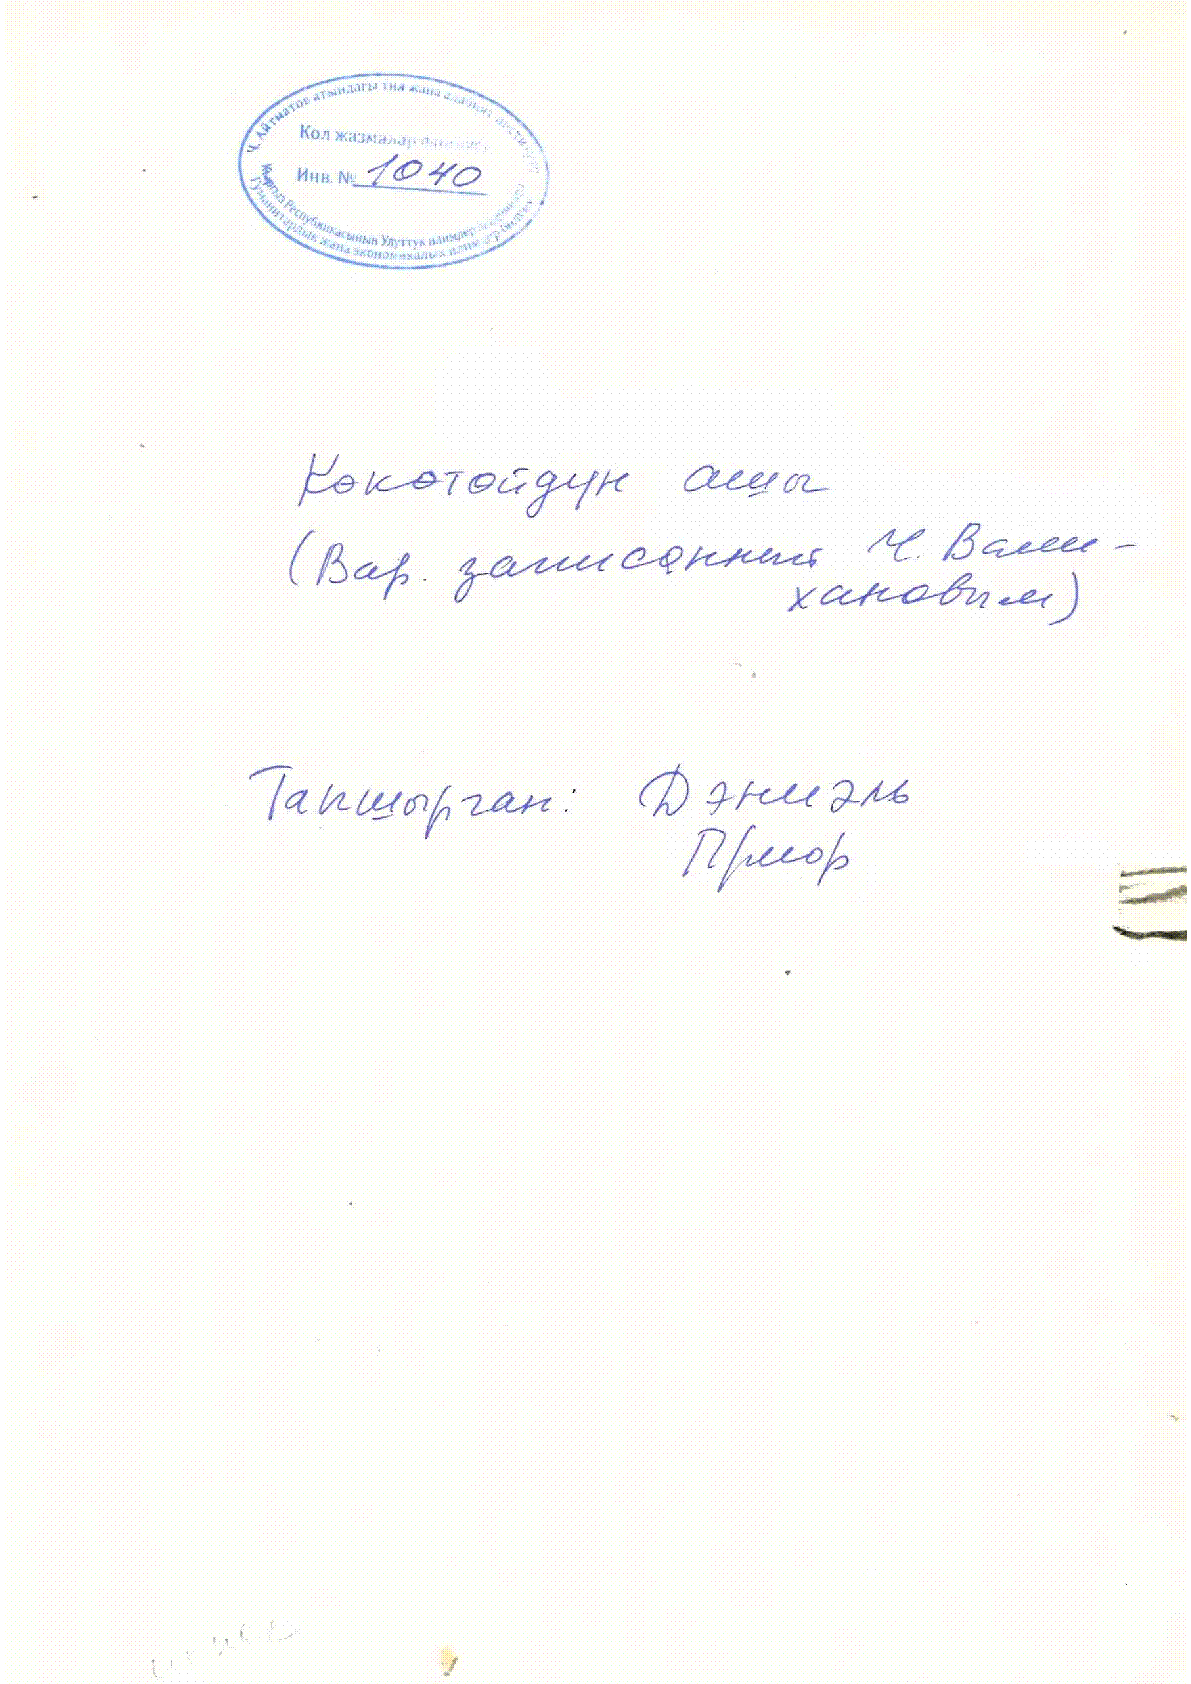 Ч. Айтматов атындагы тил жана адабият институту
Кол жазмалар
Инв. № 1040
Кыргыз Республикасынын Улуттук илимдер
Гуманитардык жана экономикалык илимдер бөлүмү
Көкөтөйдүн ашы
(Вар. записанный Ч. Вали-
хановым)
Тапшырган: Дэниэль
Приор